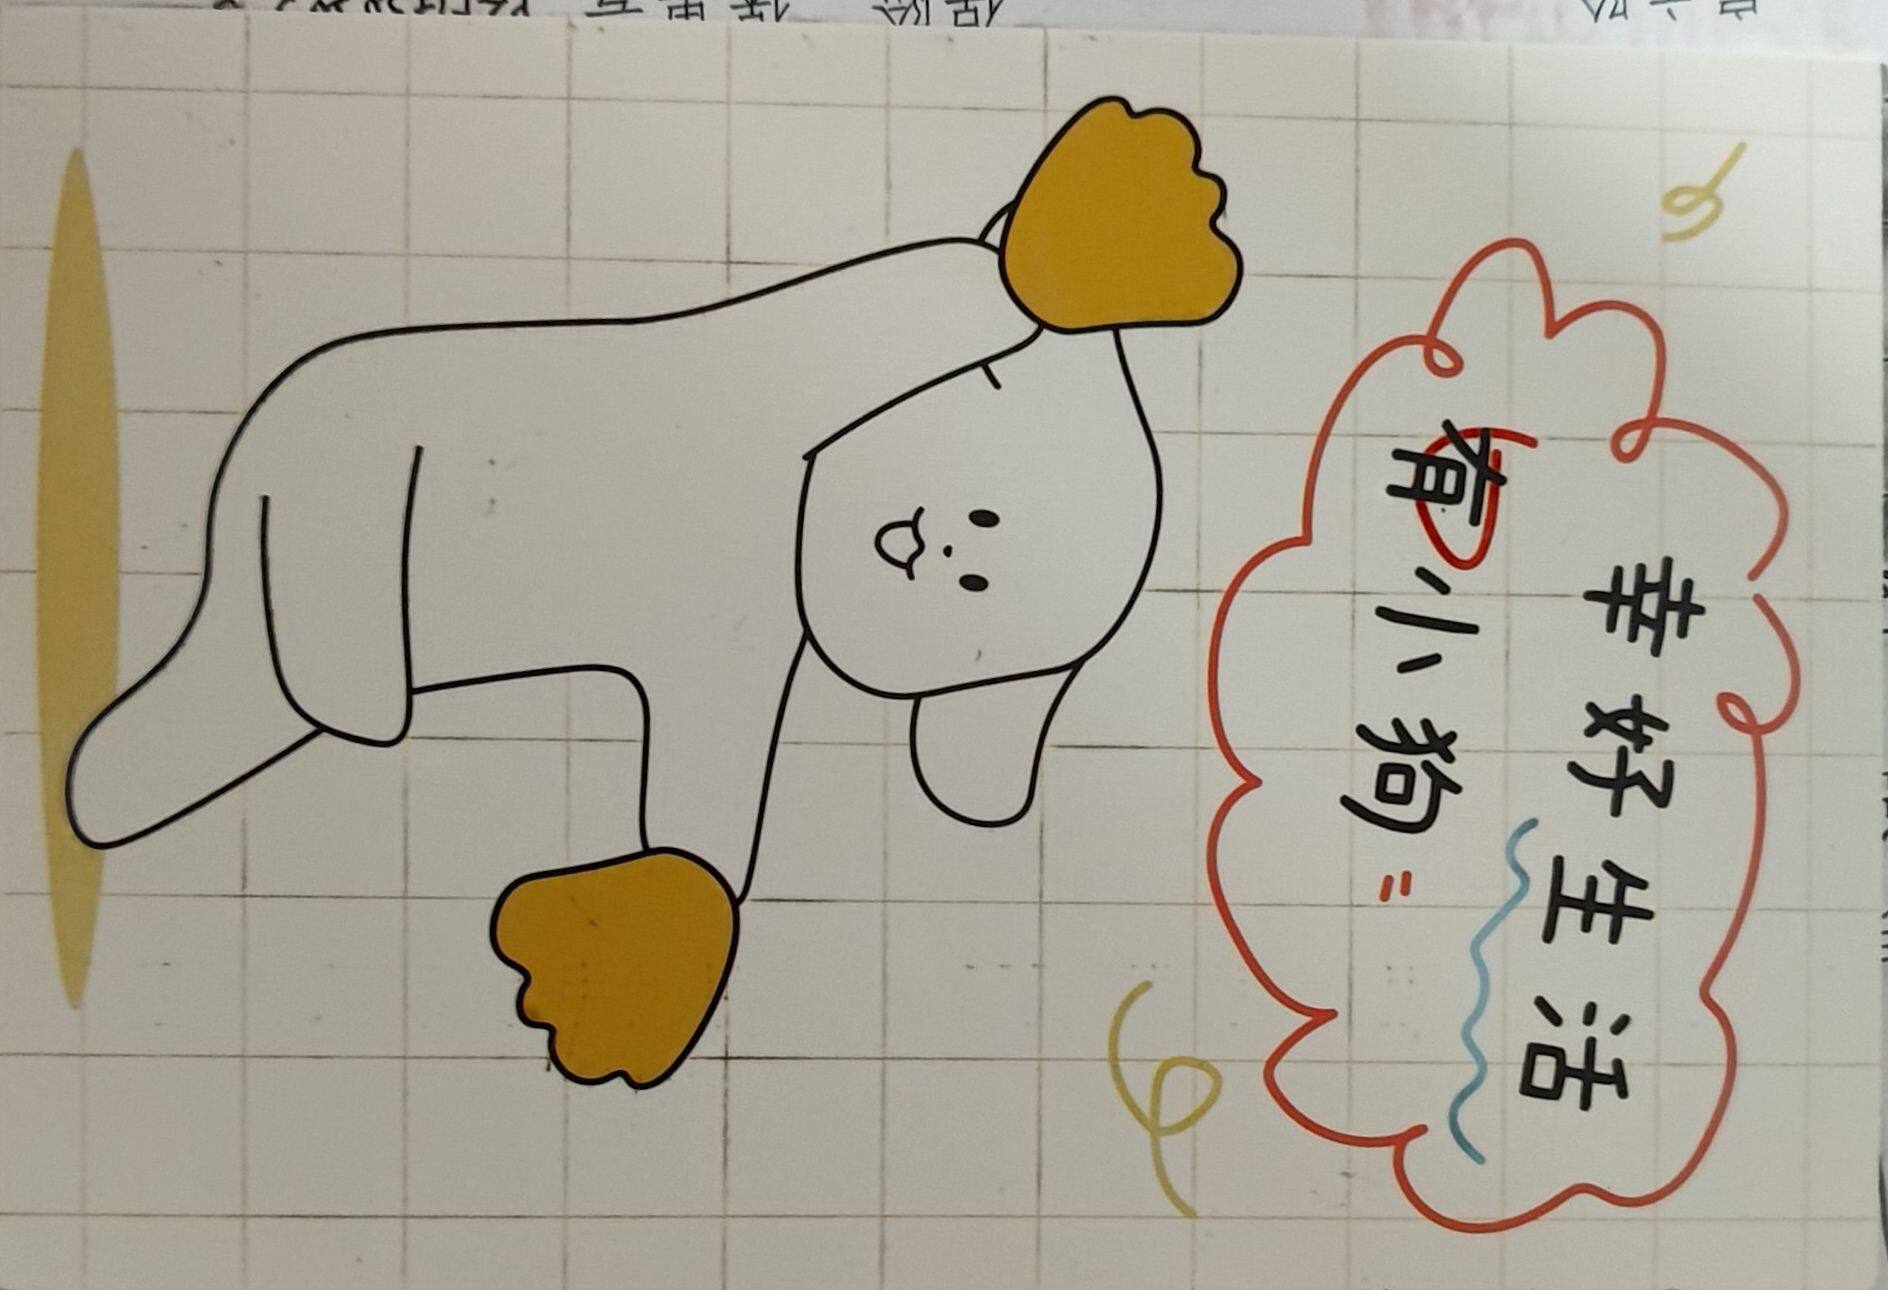 幸好生活
有小狗